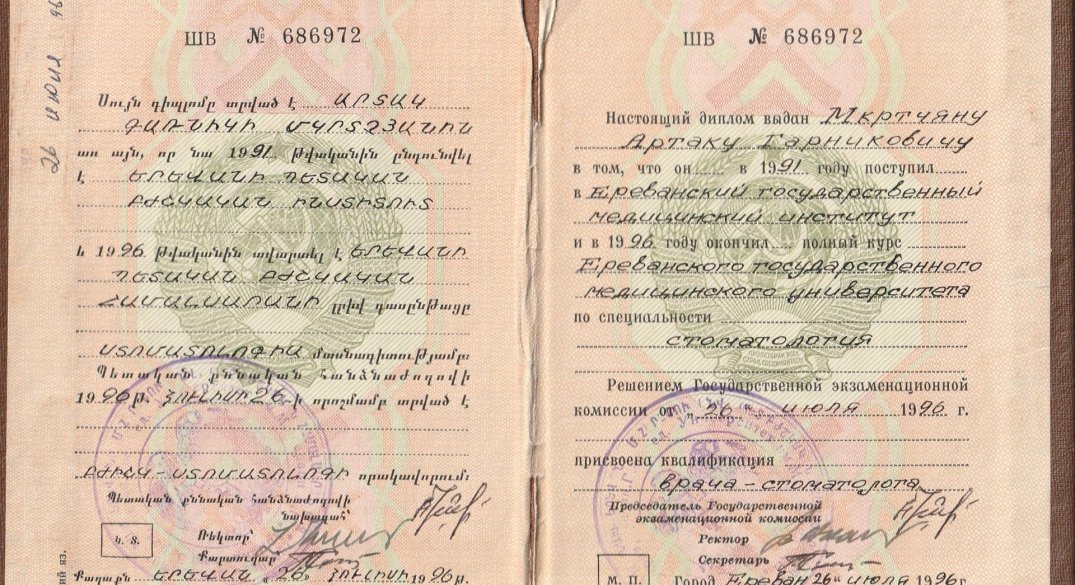 ШВ № 686972
Սույն դիպլոմը տրված է ԱՐՏԱԿ
ԳԱՌՆԻԿԻ ՄԿՐՏՉՅԱՆԻՆ
առ այն, որ նա 1991 թվականին ընդունվել
է ԵՐԵՎԱՆԻ ՊԵՏԱԿԱՆ
ԲԺՇԿԱԿԱՆ ԻՆՍՏԻՏՈՒՏ
և 1996 թվականին ավարտել է ԵՐԵՎԱՆԻ
ՊԵՏԱԿԱՆ ԲԺՇԿԱԿԱՆ
ՀԱՄԱԼՍԱՐԱՆԻ լրիվ դասընթացը
ՍՏՈՄԱՏՈԼՈԳԻԱ մասնագիտությամբ:
Պետական քննական հանձնաժողովի
1996 թ. ՀՈՒԼԻՍԻ 26-ի որոշմամբ տրված է
ԲԺԻՇԿ-ՍՏՈՄԱՏՈԼՈԳԻ որակավորում:
Պետական քննական հանձնաժողովի
նախագահ՝
Ռեկտոր՝
Քարտուղար՝
Կ. Տ.
Քաղաքն ԵՐԵՎԱՆ „26" ՀՈՒԼԻՍԻ 1996թ.
26 июля 96
ий яз.
ШВ № 686972
Настоящий диплом выдан Мкртчяну
Артаку Гарниковичу
в том, что он в 1991 году поступил
в Ереванский государственный
медицинский институт
и в 1996 году окончил полный курс
Ереванского государственного
медицинского университета
по специальности
стоматология
Решением Государственной экзаменационной
комиссии от „26" июля 1996 г.
присвоена квалификация
врача-стоматолога
Председатель Государственной
экзаменационной комиссии
Ректор
Секретарь
М. П. Город Ереван 26" июля 1996г.
ПРОЛЕТАРИИ ВСЕХ
СТРАН, СОЕДИНЯЙТЕСЬ!